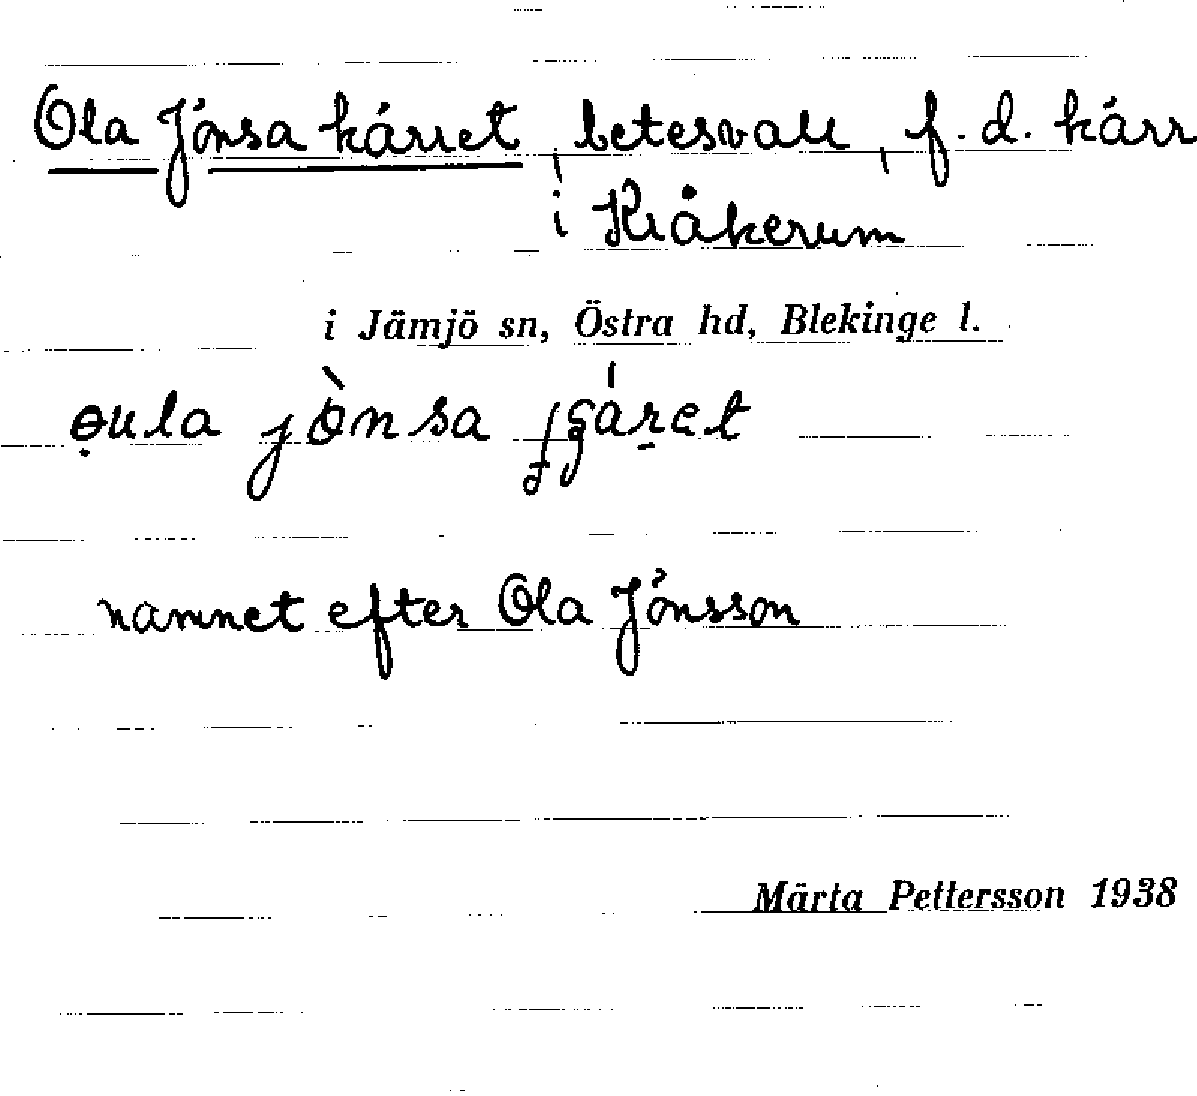 Ola Jönsa kärret, betesvall, f.d. kärr
i Kråkerum
i Jämjö sn, Östra hd, Blekinge l.
jònsa
namnet efter Ola Jönsson
Märta Pettersson 1938